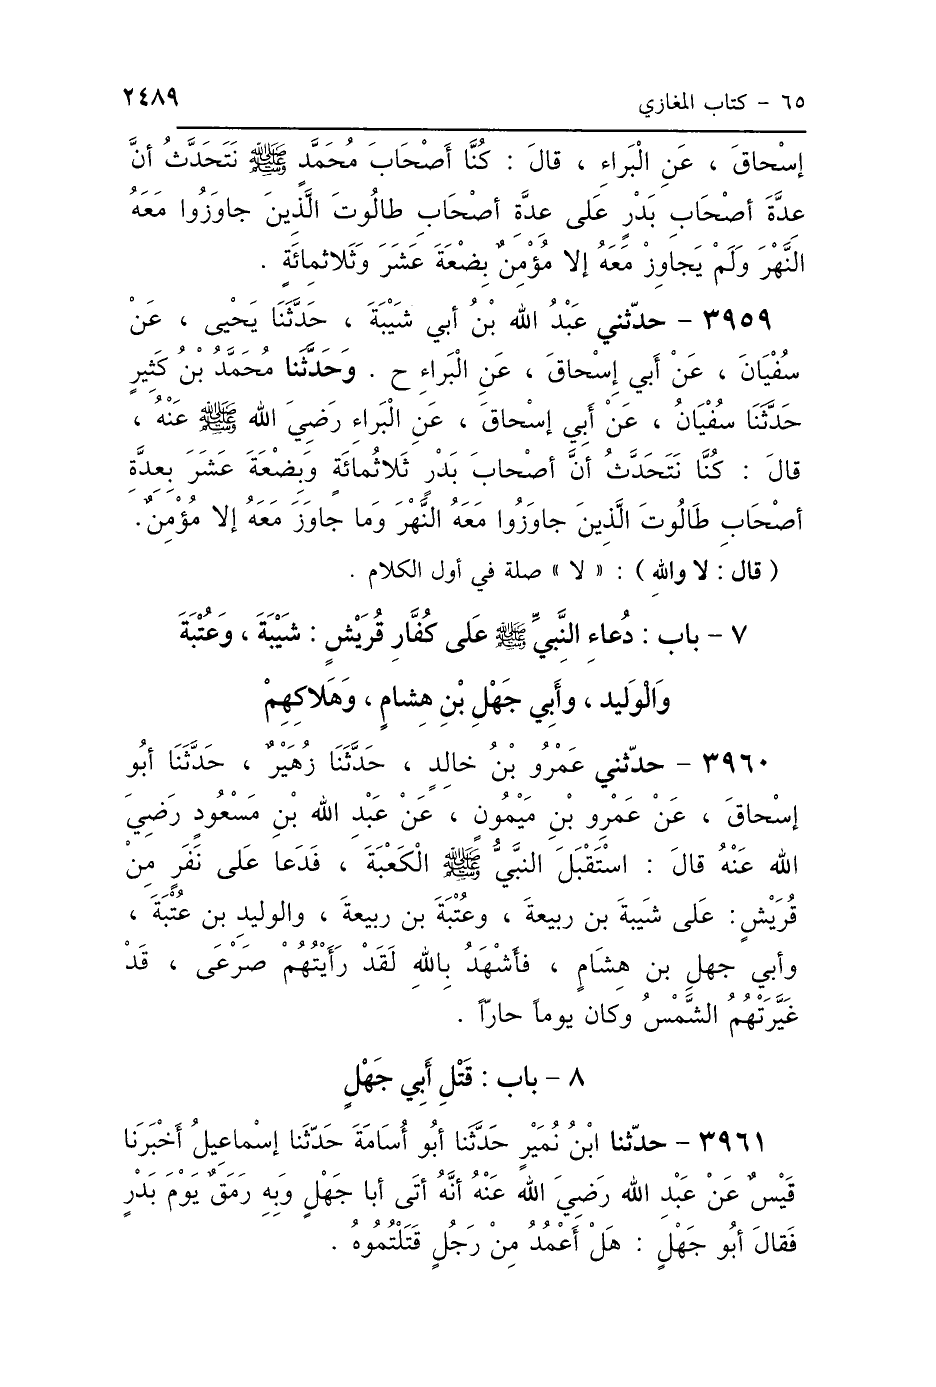 ٦٥ - كتاب المغازي ٢٤٨٩
إسْحاقَ ، عَنِ الْبَراءِ ، قالَ : كُنَّا أَصْحَابَ مُحَمَّدٍ ﷺ نَتَحَدَّثُ أنَّ
عِدَّةَ أصْحَابِ بَدْرٍ عَلى عِدَّةِ أصْحَابِ طالُوتَ الَّذِينَ جاوَزُوا مَعَهُ
النَّهْرَ وَلَمْ يَجاوِزْ مَعَهُ إلا مُؤْمِنٌ بِضْعَةَ عَشَرَ وَثَلاثمائَةٍ .
٣٩٥٩ - حدّثني عَبْدُ الله بْنُ أبي شَيْبَةَ ، حَدَّثَنَا يَحْيى ، عَنْ
سُفْيَانَ ، عَنْ أَبي إسْحاقَ ، عَنِ الْبَراءِ ح . وَحَدَّثَنا مُحَمَّدُ بْنُ كَثِيرٍ
حَدَّثَنَا سُفْيَانُ ، عَنْ أَبي إسْحاقَ ، عَنِ الْبَراءِ رَضِيَ الله ﷺ عَنْهُ ،
قالَ : كُنَّا نَتَحَدَّثُ أنَّ أصْحابَ بَدْرٍ ثَلاثُمائَةٍ وَبِضْعَةَ عَشَرَ بِعِدَّةِ
أصْحَابِ طَالُوتَ الَّذِينَ جاوَزُوا مَعَهُ النَّهْرَ وَما جاوَزَ مَعَهُ إلا مُؤْمِنٌ .
( قال : لا واللهِ ) : « لا » صلة في أول الكلام .
٧ - باب : دُعاءِ النَّبِيِّ ﷺ عَلى كُفَّارِ قُرَيْشٍ : شَيْبَةَ ، وَعُتْبَةَ
وَالْوَلِيد ، وأَبي جَهْلِ بْنِ هِشامٍ ، وَهَلاكِهِمْ
٣٩٦٠ - حدّثني عَمْرُو بْنُ خالِدٍ ، حَدَّثَنَا زُهَيْرٌ ، حَدَّثَنَا أَبُو
إسْحاقَ ، عَنْ عَمْرِو بْنِ مَيْمُونٍ ، عَنْ عَبْدِ الله بْنِ مَسْعُودٍ رَضِيَ
الله عَنْهُ قالَ : اسْتَقْبَلَ النَّبيُّ ﷺ الْكَعْبَةَ ، فَدَعا عَلى نَفَرٍ مِنْ
قُرَيْشٍ : عَلى شَيبةَ بن ربيعةَ ، وعُتْبَةَ بن ربيعةَ ، والوليدِ بن عُتْبَةَ ،
وأبي جهلِ بن هِشَامٍ ، فأَشْهَدُ بِاللهِ لَقَدْ رَأَيْتُهُمْ صَرْعَى ، قَدْ
غَيَّرَتْهُمُ الشَّمْسُ وكان يوماً حارّاً .
٨ - باب : قَتْلِ أَبِي جَهْلٍ
٣٩٦١ - حدّثنا ابْنُ نُمَيْرٍ حَدَّثَنا أبُو أُسَامَةَ حَدّثَنا إسْماعِيلُ أخْبَرَنا
قَيْسٌ عَنْ عَبْدِ الله رَضِيَ الله عَنْهُ أنَّهُ أتَى أبا جَهْلٍ وَبِهِ رَمَقٌ يَوْمَ بَدْرٍ
فَقالَ أبُو جَهْلٍ : هَلْ أَعْمَدُ مِنْ رَجُلٍ قَتَلْتُمُوهُ .